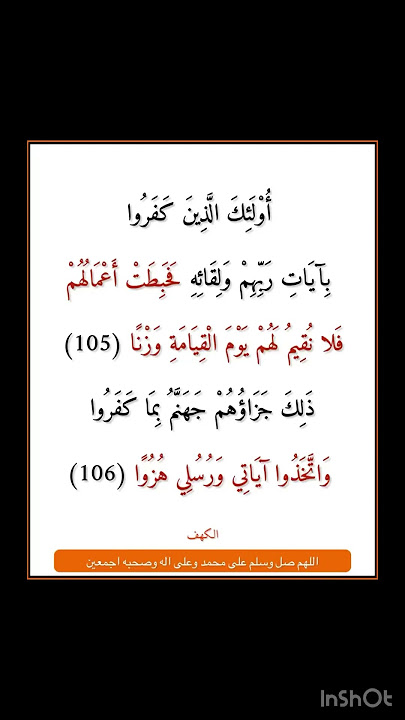 أُوْلَئِكَ الَّذِينَ كَفَرُوا
بِآيَاتِ رَبِّهِمْ وَلِقَائِهِ فَحَبِطَتْ أَعْمَالُهُمْ
فَلا نُقِيمُ لَهُمْ يَوْمَ الْقِيَامَةِ وَزْنًا (105)
ذَلِكَ جَزَاؤُهُمْ جَهَنَّمُ بِمَا كَفَرُوا
وَاتَّخَذُوا آيَاتِي وَرُسُلِي هُزُوًا (106)
الكهف
اللهم صل وسلم على محمد وعلى اله وصحبه اجمعين
InShOt